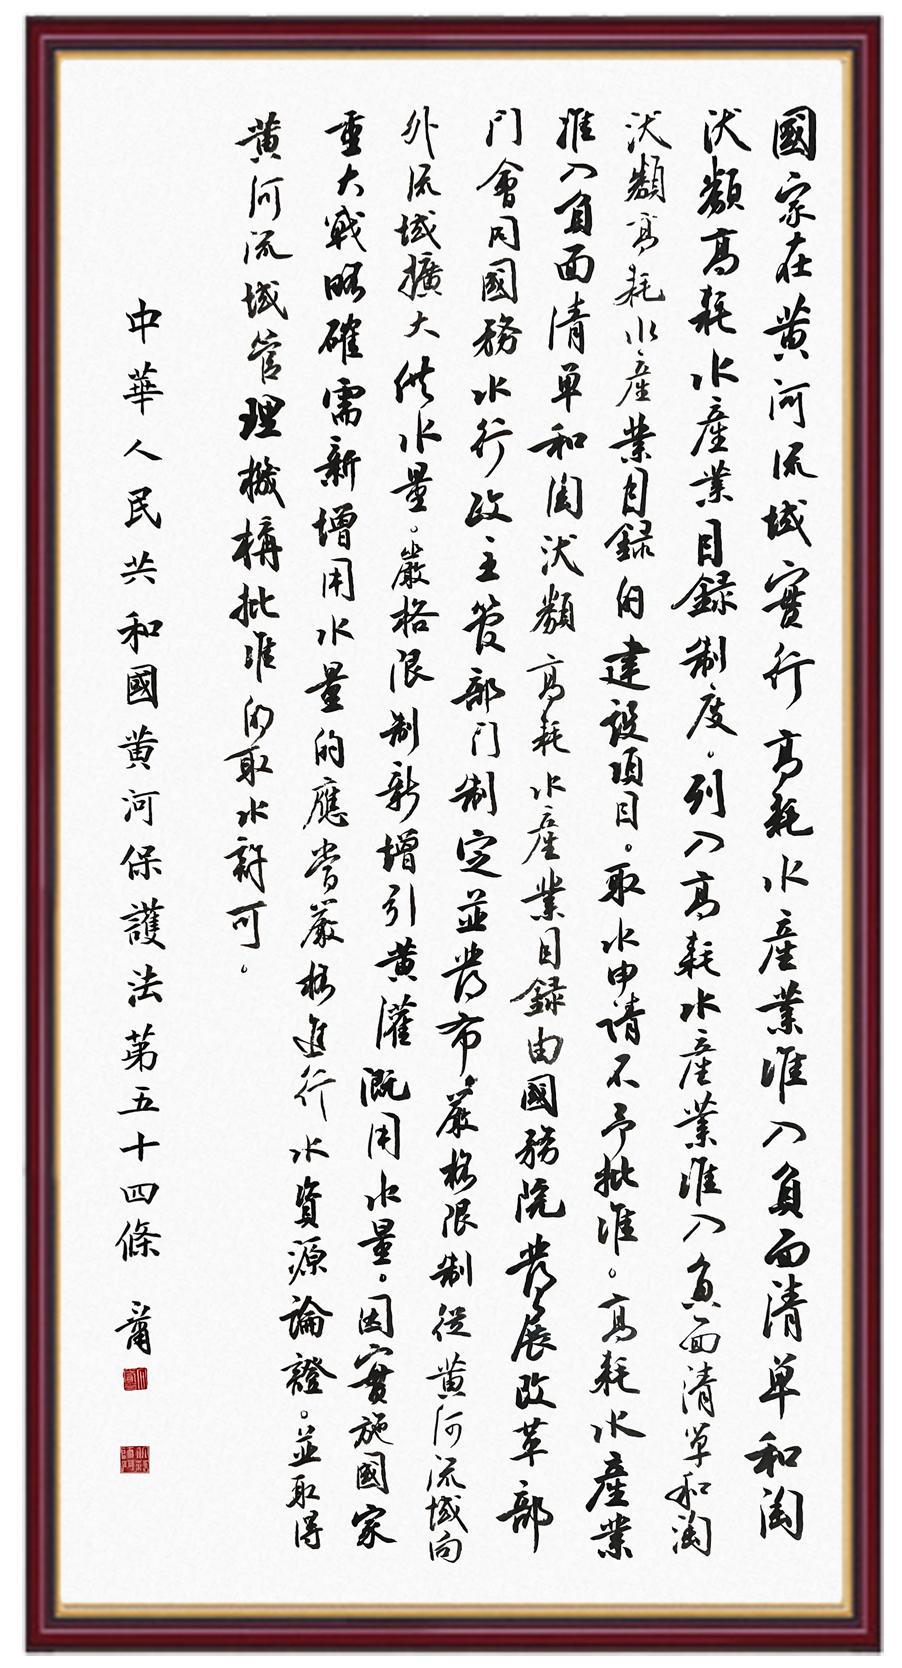 國家在黄河流域實行高耗水産業准入負面清單和淘
汰類高耗水産業目録制度。列入高耗水産業准入負面清單和淘
汰類高耗水産業目録的建設項目。取水申請不予批准。高耗水産業
准入負面清單和淘汰類高耗水産業目録由國務院發展改革部
門會同國務水行政主管部門制定並發布嚴格限制從黄河流域向
外流域擴大供水量。嚴格限制新增引黄灌溉用水量。因實施國家
重大戰略確需新增用水量的應當嚴格進行水資源論證。並取得
黄河流域管理機構批准的取水許可。
中華人民共和國黄河保護法第五十四條